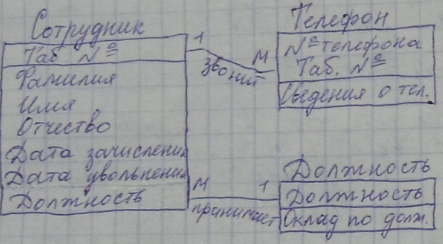 Сотрудник
Таб. №
Фамилия
Имя
Отчество
Дата зачисления
Дата увольнения
Должность
1
звонит
М
Телефон
№ телефона
Таб. №
Сведения о тел.
М
принимает
1
Должность
Должность
Оклад по долж.